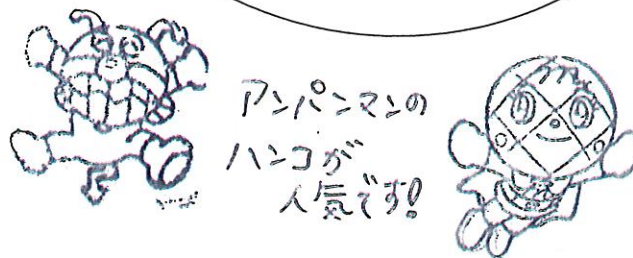 アンパンマンの
ハンコが
人気です!